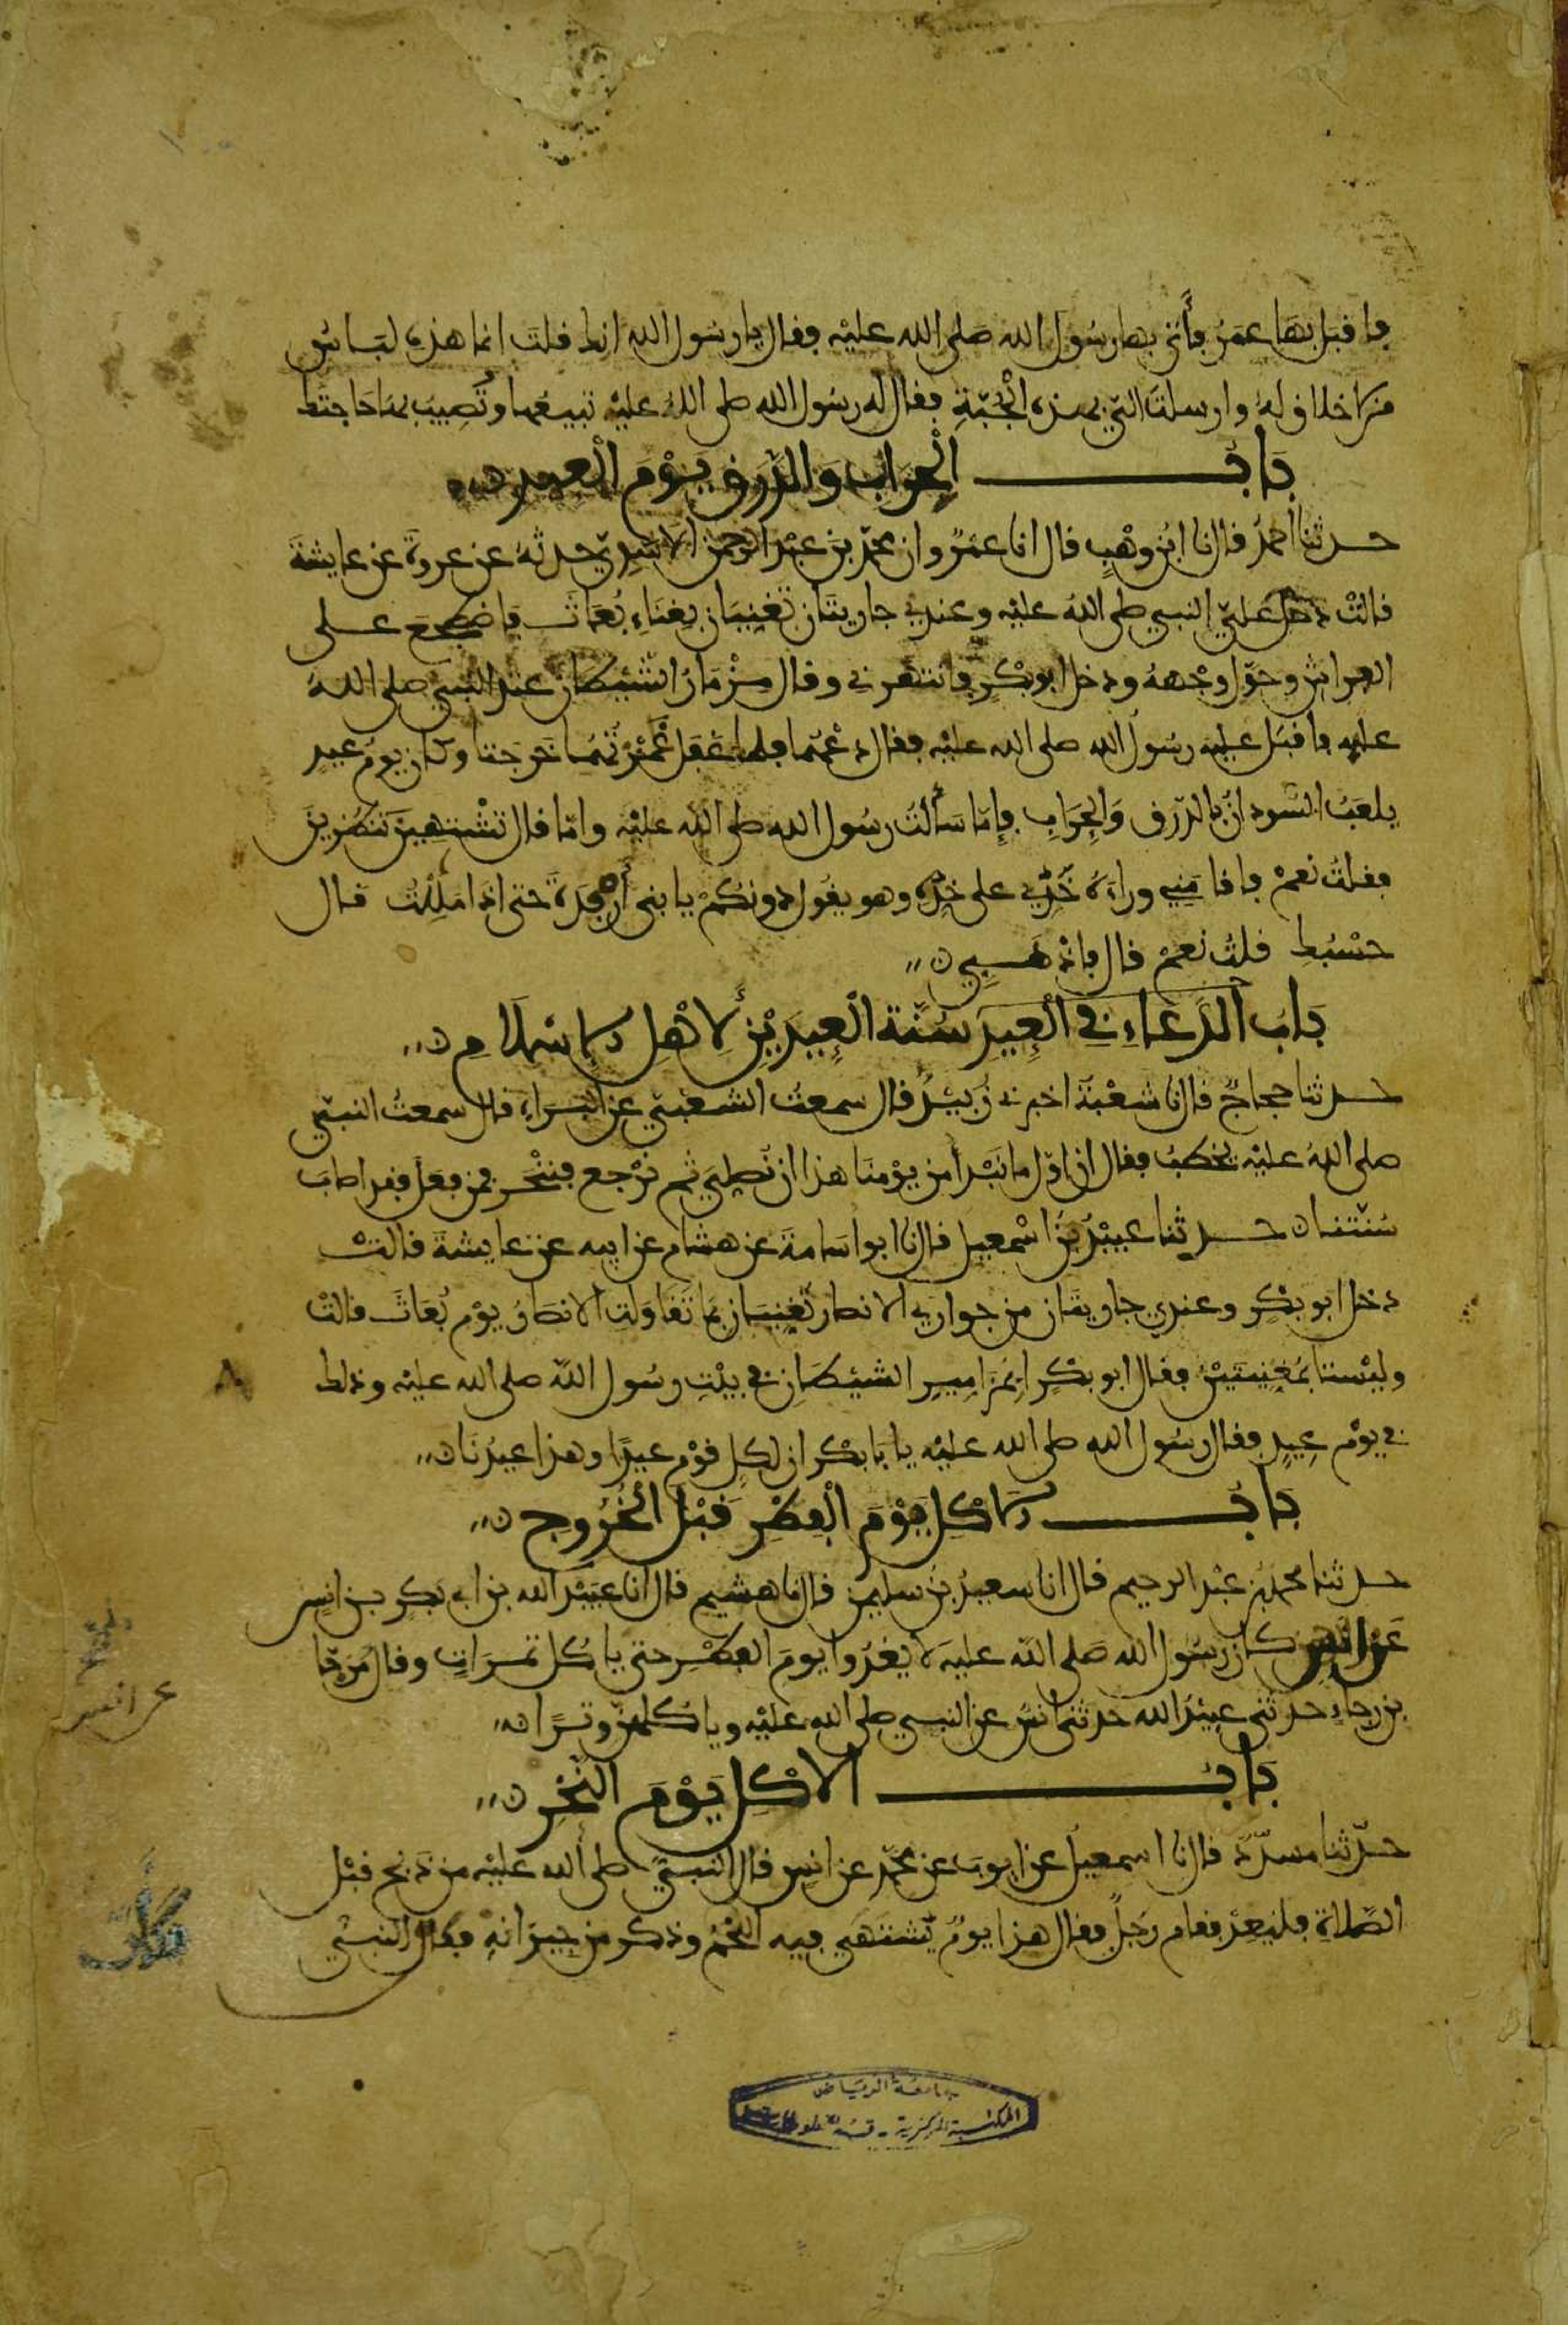 فاقبل بها عمر فأتى بها رسول الله صلى الله عليه فقال يا رسول الله انك قلت انما هذه لباس
من لا خلاق له وارسلت الي بهذه الجبة فقال له رسول الله صلى الله عليه تبيعها وتصيب بها حاجتك
باب الحراب والدرق يوم العيد
حدثنا احمد قال نا ابن وهب قال انا عمرو ان محمد بن عبد الرحمن الاسدي حدثه عن عروة عن عايشة
قالت دخل علي النبي صلى الله عليه وعندي جاريتان تغنيان بغناء بعاث فاضطجع على
الفراش وحول وجهه ودخل ابو بكر فانتهرني وقال مزمار الشيطان عند النبي صلى الله
عليه فاقبل عليه رسول الله صلى الله عليه فقال دعهما فلما غفل غمزتهما خرجتا وكان يوم عيد
يلعب السودان بالدرق والحراب فإما سألت رسول الله صلى الله عليه واما قال تشتهين تنظرين
فقلت نعم فاقامني وراءه خدي على خده وهو يقول دونكم يا بني أرفدة حتى اذا مللت قال
حسبك قلت نعم قال فاذهبي
باب الدعاء في العيد سنة العيدين لأهل الإسلام
حدثنا حجاج قال نا شعبة اخبرني زبيد قال سمعت الشعبي عن البراء قال سمعت النبي
صلى الله عليه يخطب فقال ان اول ما نبدأ من يومنا هذا ان نصلي ثم نرجع فننحر فمن فعل فقد اصاب
سنتنا حدثنا عبيد بن اسمعيل قال نا ابو اسامة عن هشام عن ابيه عن عايشة قالت
دخل ابو بكر وعندي جاريتان من جواري الانصار تغنيان بما تقاولت الانصار يوم بعاث قالت
وليستا بمغنيتين فقال ابو بكر ابمزامير الشيطان في بيت رسول الله صلى الله عليه وذلك
في يوم عيد فقال رسول الله صلى الله عليه يا بابكر ان لكل قوم عيدا وهذا عيدنا
باب الاكل يوم الفطر قبل الخروج
حدثنا محمد بن عبد الرحيم قال انا سعيد بن سليمن قال نا هشيم قال انا عبيد الله بن ابي بكر بن انس
عن انس كان رسول الله صلى الله عليه لا يغدوا يوم الفطر حتى ياكل تمرات وقال مرجا
بن رجاء حدثني عبيد الله حدثني انس عن النبي صلى الله عليه وياكلهن وترا
عن انس
باب الاكل يوم النحر
حدثنا مسدد قال نا اسمعيل عن ايوب عن محمد عن انس قال النبي صلى الله عليه من ذبح قبل
الصلاة فليعد فقام رجل فقال هذا يوم يشتهى فيه اللحم وذكر من جيرانه فكأن النبي
جامعة الرياض
المكتبة المركزية - قسم المخطوطات